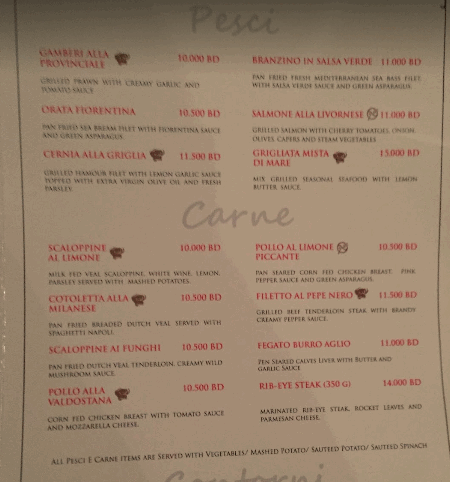 Pesci
GAMBERI ALLA
PROVINCIALE 10.000 BD
GRILLED PRAWN WITH CREAMY GARLIC AND
TOMATO SAUCE
ORATA FIORENTINA 10.500 BD
PAN FRIED SEA BREAM FILET WITH FIORENTINA SAUCE
AND GREEN ASPARAGUS
CERNIA ALLA GRIGLIA 11.500 BD
GRILLED HAMOUR FILET WITH LEMON GARLIC SAUCE
TOPPED WITH EXTRA VIRGIN OLIVE OIL AND FRESH
PARSLEY.
BRANZINO IN SALSA VERDE 11.000 BD
PAN FRIED FRESH MEDITERRANEAN SEA BASS FILET
WITH SALSA VERDE SAUCE AND GREEN ASPARAGUS
SALMONE ALLA LIVORNESE 11.000 BD
GRILLED SALMON WITH CHERRY TOMATOES, ONION,
OLIVES, CAPERS AND STEAM VEGETABLES
GRIGLIATA MISTA
DI MARE 15.000 BD
MIX GRILLED SEASONAL SEAFOOD WITH LEMON
BUTTER SAUCE.
Carne
SCALOPPINE
AL LIMONE 10.000 BD
MILK FED VEAL SCALOPPINE, WHITE WINE, LEMON,
PARSLEY SERVED WITH MASHED POTATOES.
COTOLETTA ALLA
MILANESE 10.500 BD
PAN FRIED BREADED DUTCH VEAL SERVED WITH
SPAGHETTI NAPOLI.
SCALOPPINE AI FUNGHI 10.500 BD
PAN FRIED DUTCH VEAL TENDERLOIN, CREAMY WILD
MUSHROOM SAUCE.
POLLO ALLA
VALDOSTANA 10.500 BD
CORN FED CHICKEN BREAST WITH TOMATO SAUCE
AND MOZZARELLA CHEESE.
POLLO AL LIMONE
PICCANTE 10.500 BD
PAN SEARED CORN FED CHICKEN BREAST, PINK
PEPPER SAUCE AND GREEN ASPARAGUS.
FILETTO AL PEPE NERO 11.500 BD
GRILLED BEEF TENDERLOIN STEAK WITH BRANDY
CREAMY PEPPER SAUCE.
FEGATO BURRO AGLIO 11.000 BD
PEN SEARED CALVES LIVER WITH BUTTER AND
GARLIC SAUCE
RIB-EYE STEAK (350 G) 14.000 BD
MARINATED RIB-EYE STEAK, ROCKET LEAVES AND
PARMESAN CHEESE.
ALL PESCI E CARNE ITEMS ARE SERVED WITH VEGETABLES/ MASHED POTATO/ SAUTEED POTATO/ SAUTEED SPINACH
Contorni